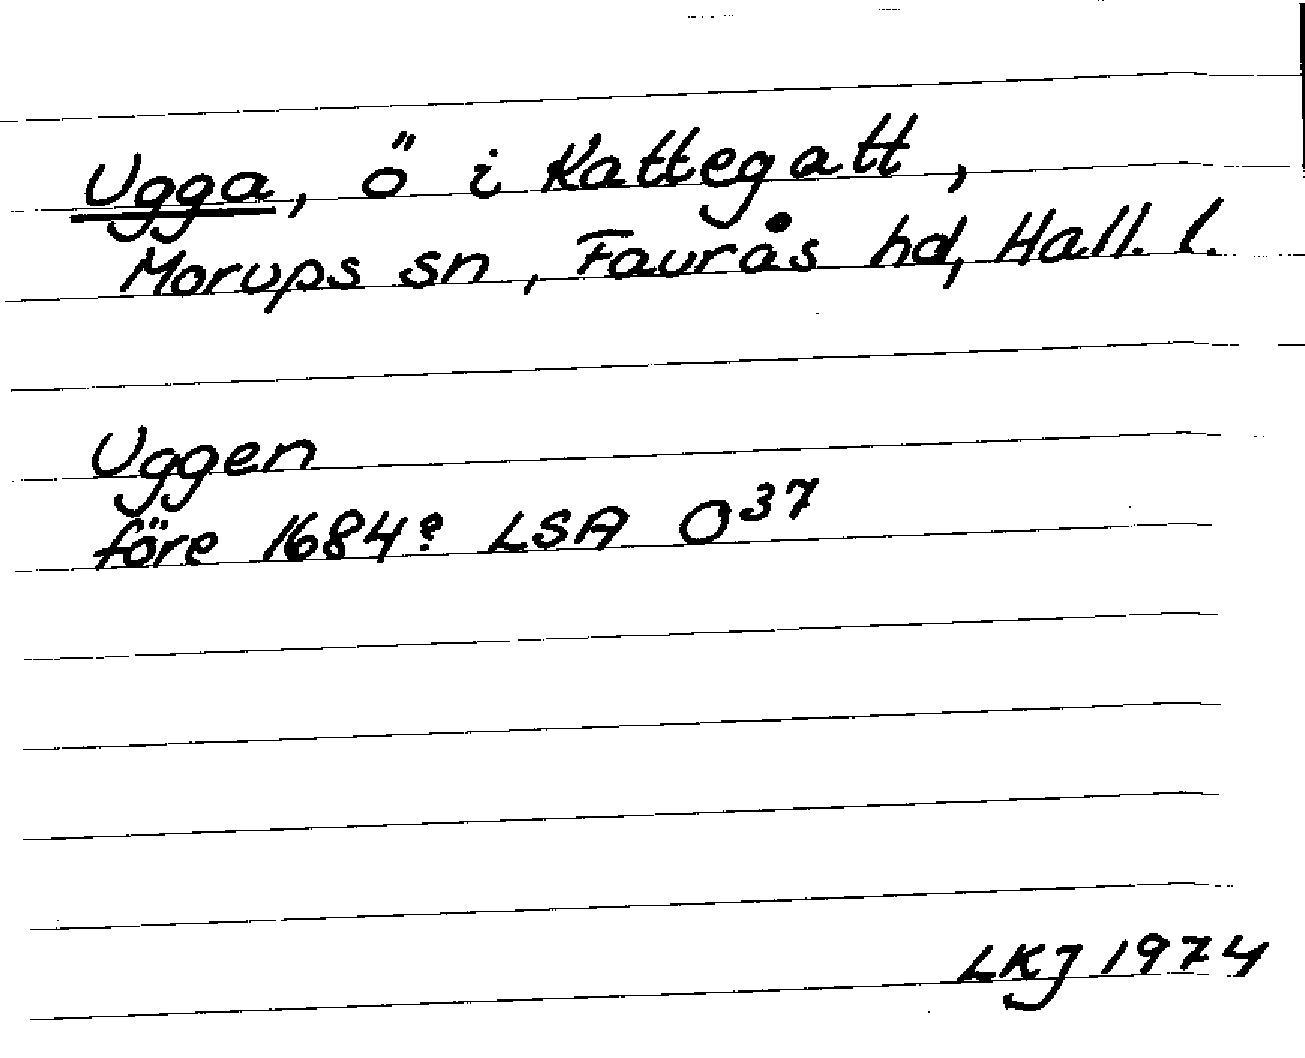 Ugga, ö i Kattegatt,
Morups sn, Faurås hd, Hall. l.
Uggen
före 1684? LSA O37
LKJ 1974